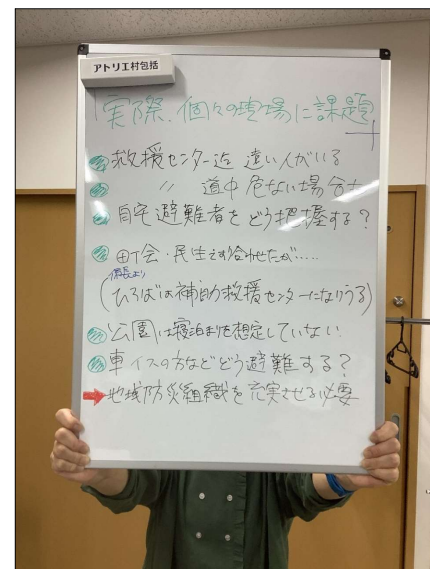 アトリエ村包括
実際、個々の現場に課題
救援センター迄 遠い人がいる
〃 道中 危ない場合も
自宅避難者をどう把握する?
町会・民生
(ひろばは補助救援センターになりうる)
公園は寝泊まりを想定していない
車イスの方などどう避難する?
→地域防災組織を充実させる必要